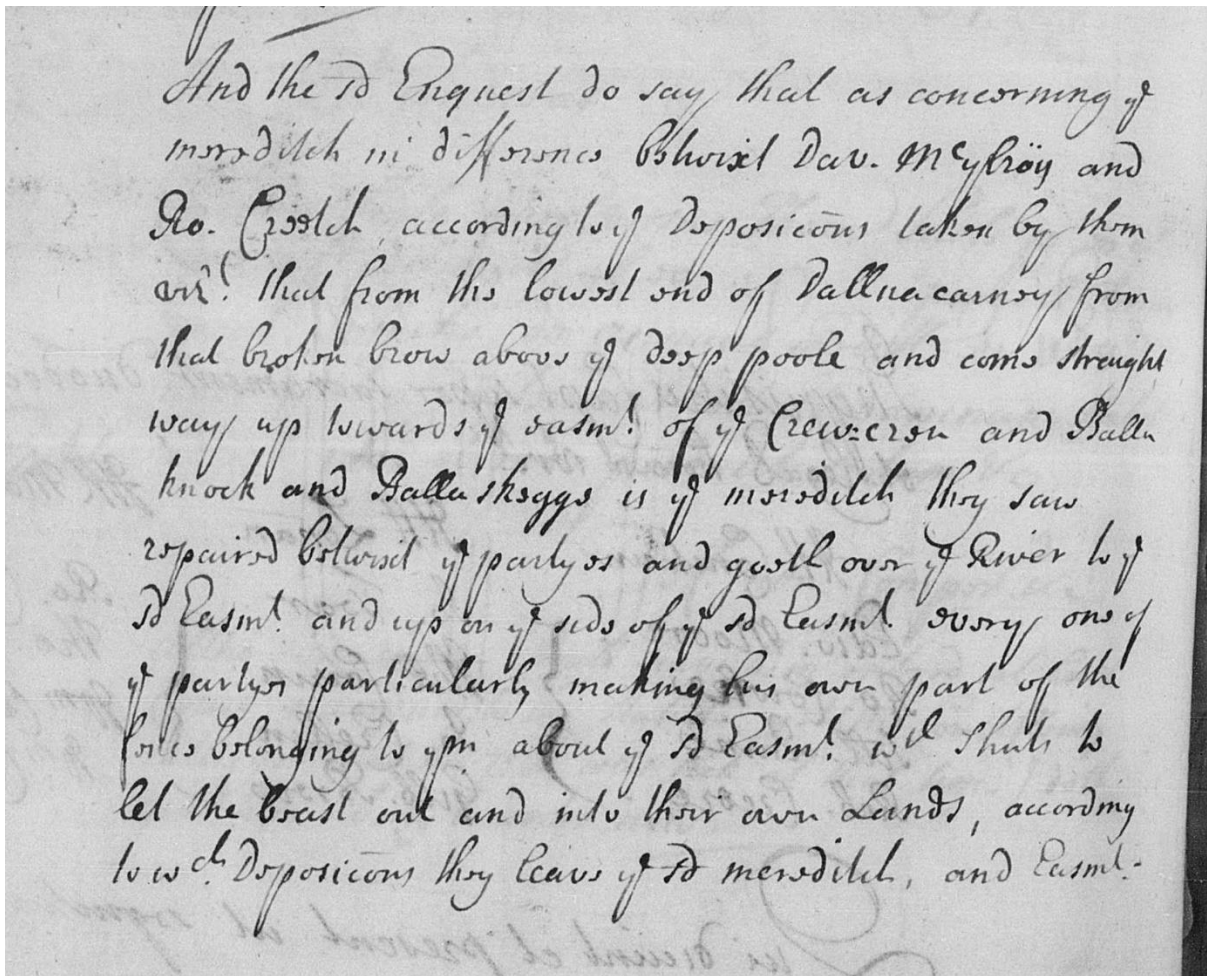 And the sd Enquest do say that as concerning ye
mereditch in difference betwixt Dav. Mcylröy and
Ro. Creetch, according to ye Deposicōns taken by them
vizt. that from the lowest end of Dallnacarney from
that broken brow above ye deep poole and come streight
way up towards ye easmt. of ye Crew=cren and Balla
knock and Ballaskeggs is ye mereditch they saw
repaired betwixt ye partyes and goeth over ye River to ye
sd Easmt. and up on ye side of ye sd Easmt. every one of
ye partyes particularly making his own part of the
fence belonging to ym about ye sd Easmt. wth Shuts to
let the beast out and into their own Lands, according
to wch. Deposicōns they leave ye sd mereditch, and Easmt.